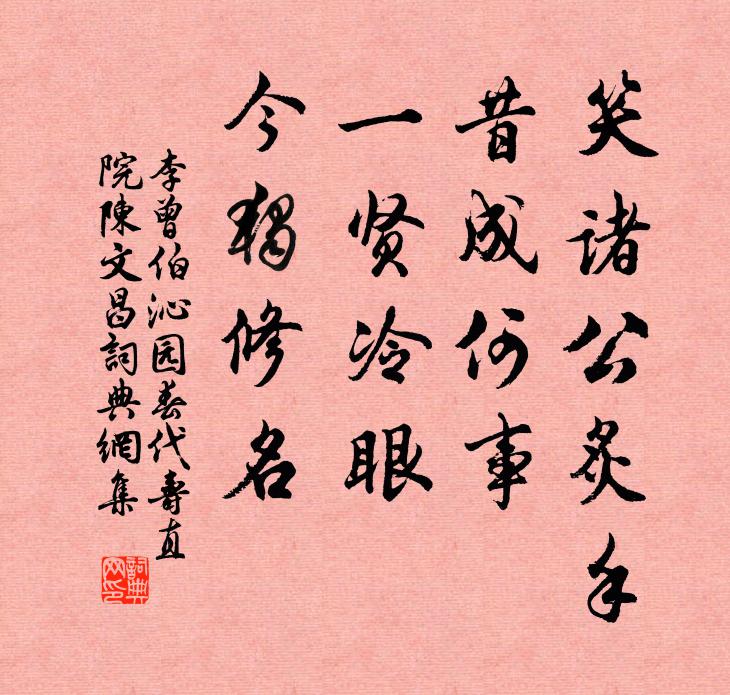 笑诸公炙手
昔成何事
一贤冷眼
今独修名
李曾伯沁园春代寿直
院陳文昌詞典網集
詞典网印